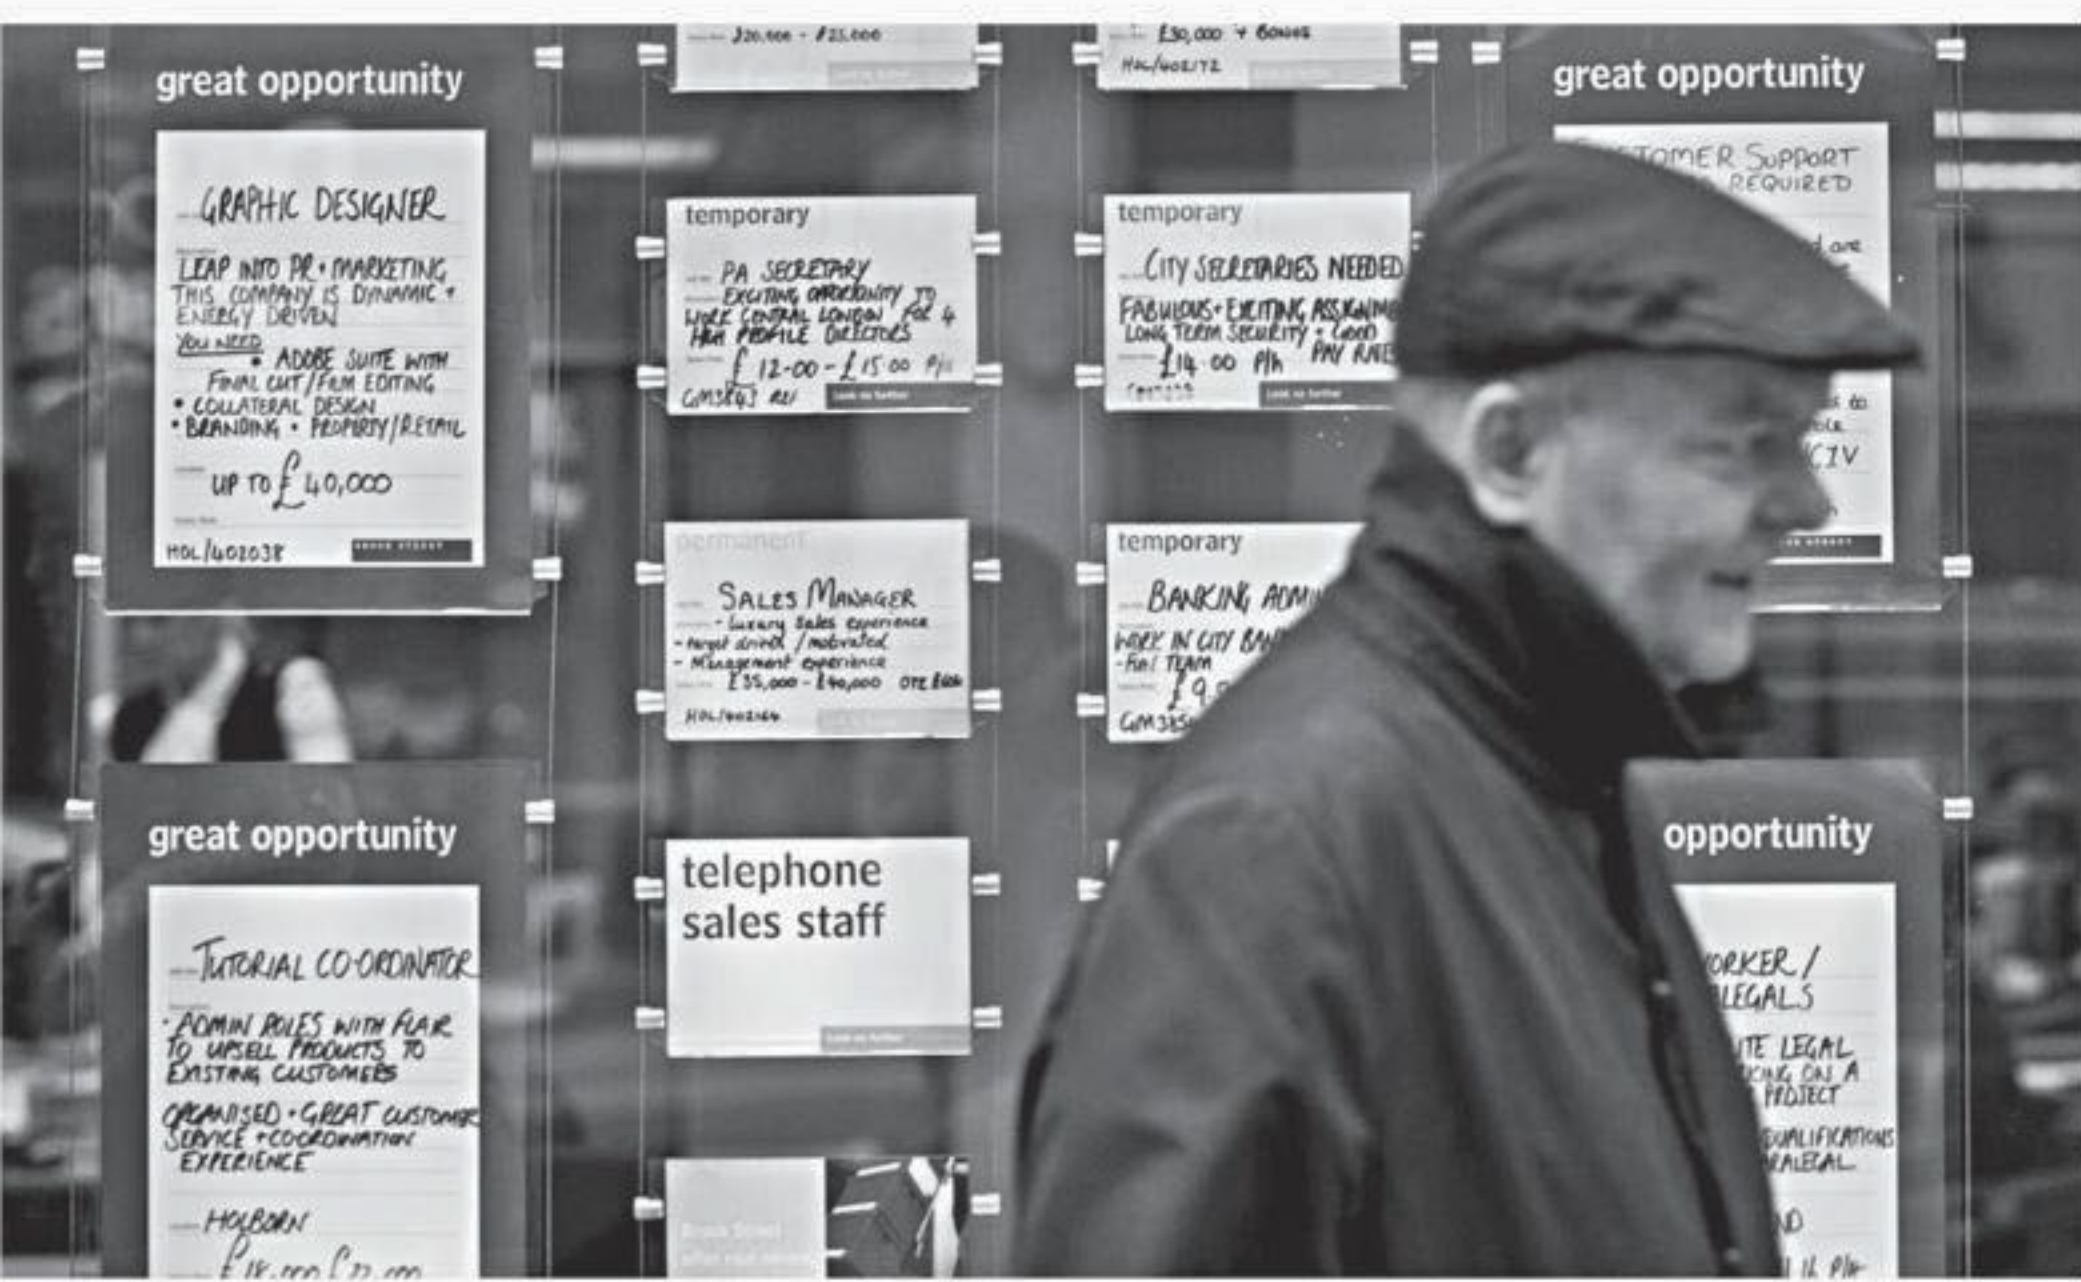 great opportunity
GRAPHIC DESIGNER
LEAP INTO PR + MARKETING
THIS COMPANY IS DYNAMIC +
ENERGY DRIVEN
YOU NEED
• ADOBE SUITE WITH
FINAL CUT/FILM EDITING
• COLLATERAL DESIGN
• BRANDING • PROPERTY/RETAIL
UP TO £40,000
HOL/402038
great opportunity
TUTORIAL CO-ORDINATOR
- ADMIN ROLES WITH FLAIR
TO UPSELL PRODUCTS TO
EXISTING CUSTOMERS
ORGANISED + GREAT CUSTOMER
SERVICE + COORDINATION
EXPERIENCE
HOLBORN
£20,000 - £25,000
temporary
PA SECRETARY
EXCITING OPPORTUNITY TO
WORK CENTRAL LONDON FOR 4
HIGH PROFILE DIRECTORS
£12.00 - £15.00
GM3843
Look no further
permanent
SALES MANAGER
- Luxury Sales experience
- target driven / motivated
- Management experience
£35,000 - £40,000 OTE
HOL/402164
telephone
sales staff
Look no further
£30,000 + BONUS
HOL/402172
temporary
CITY SECRETARIES NEEDED
FABULOUS + EXCITING
LONG TERM SECURITY + GOOD
£14.00 P/h PAY RATE
Look no further
temporary
BANKING ADMIN
WORK IN CITY
- FUN TEAM
£9.
great opportunity
SUPPORT
REQUIRED
are
to
opportunity
LEGAL
ON A
PROJECT
QUALIFICATIONS